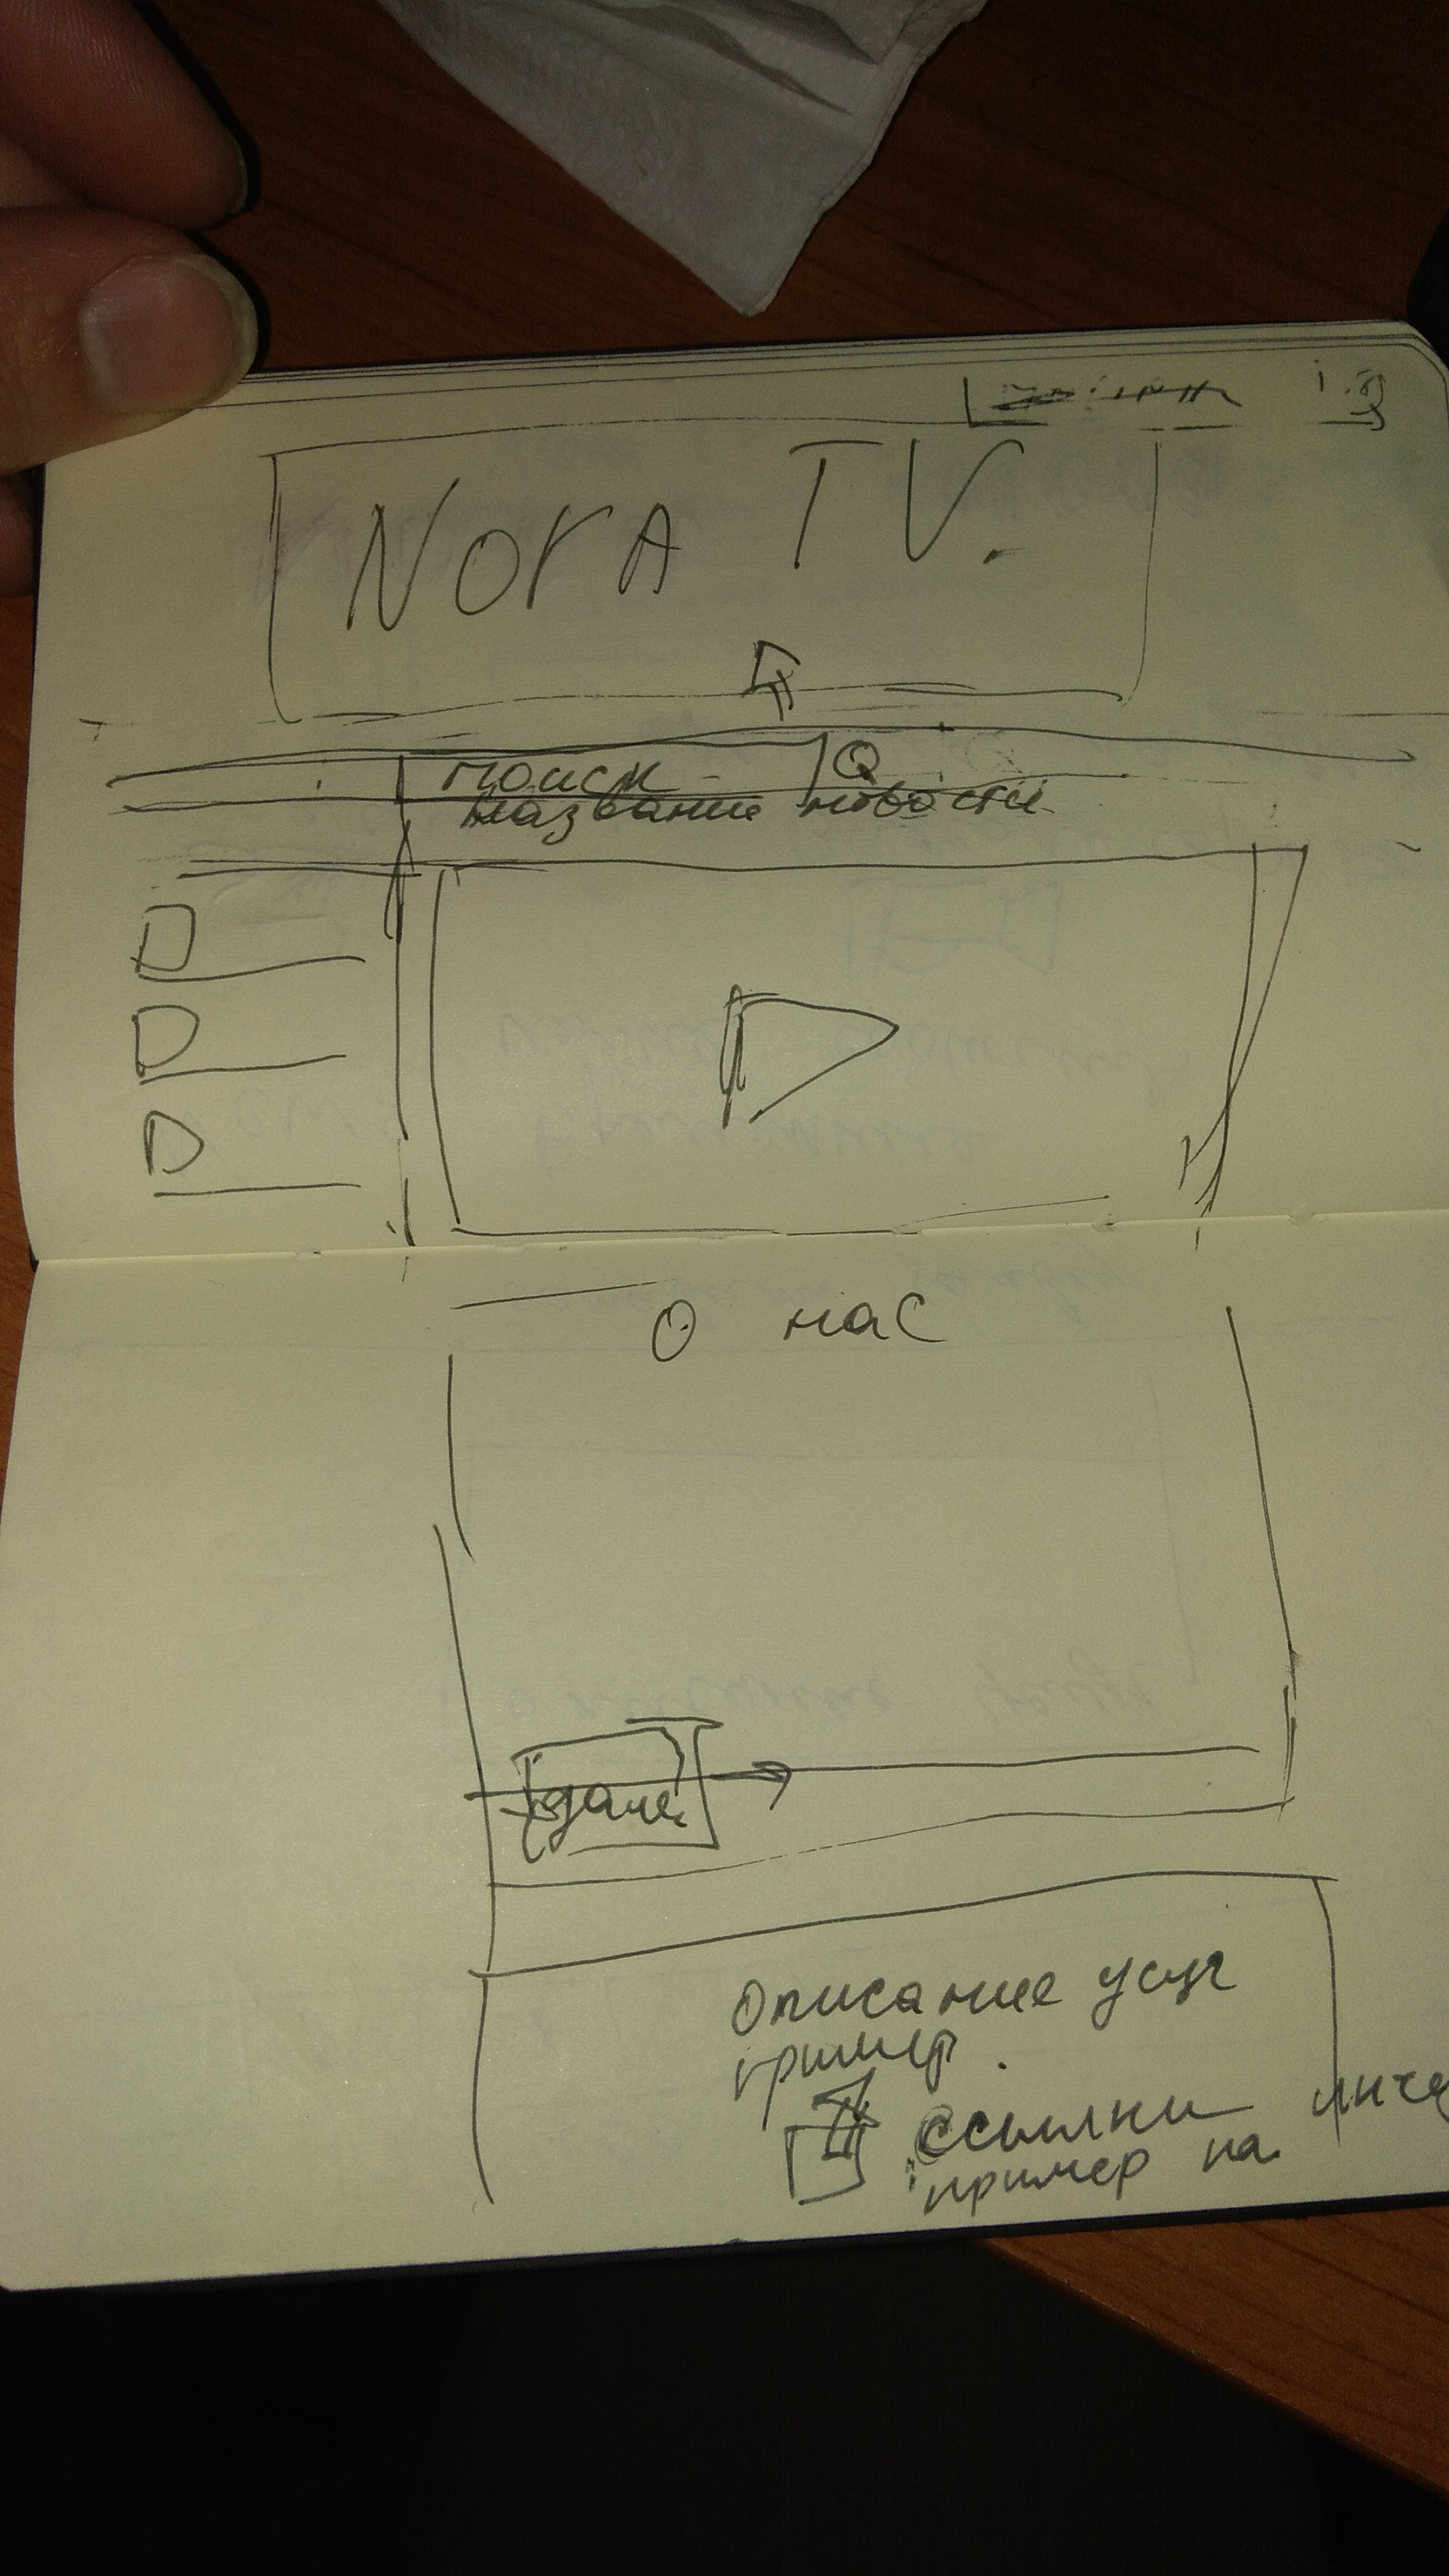 NOVA TV.
поиск
название новости
О нас
далее
Описание услуг
пример
ссылки
пример на